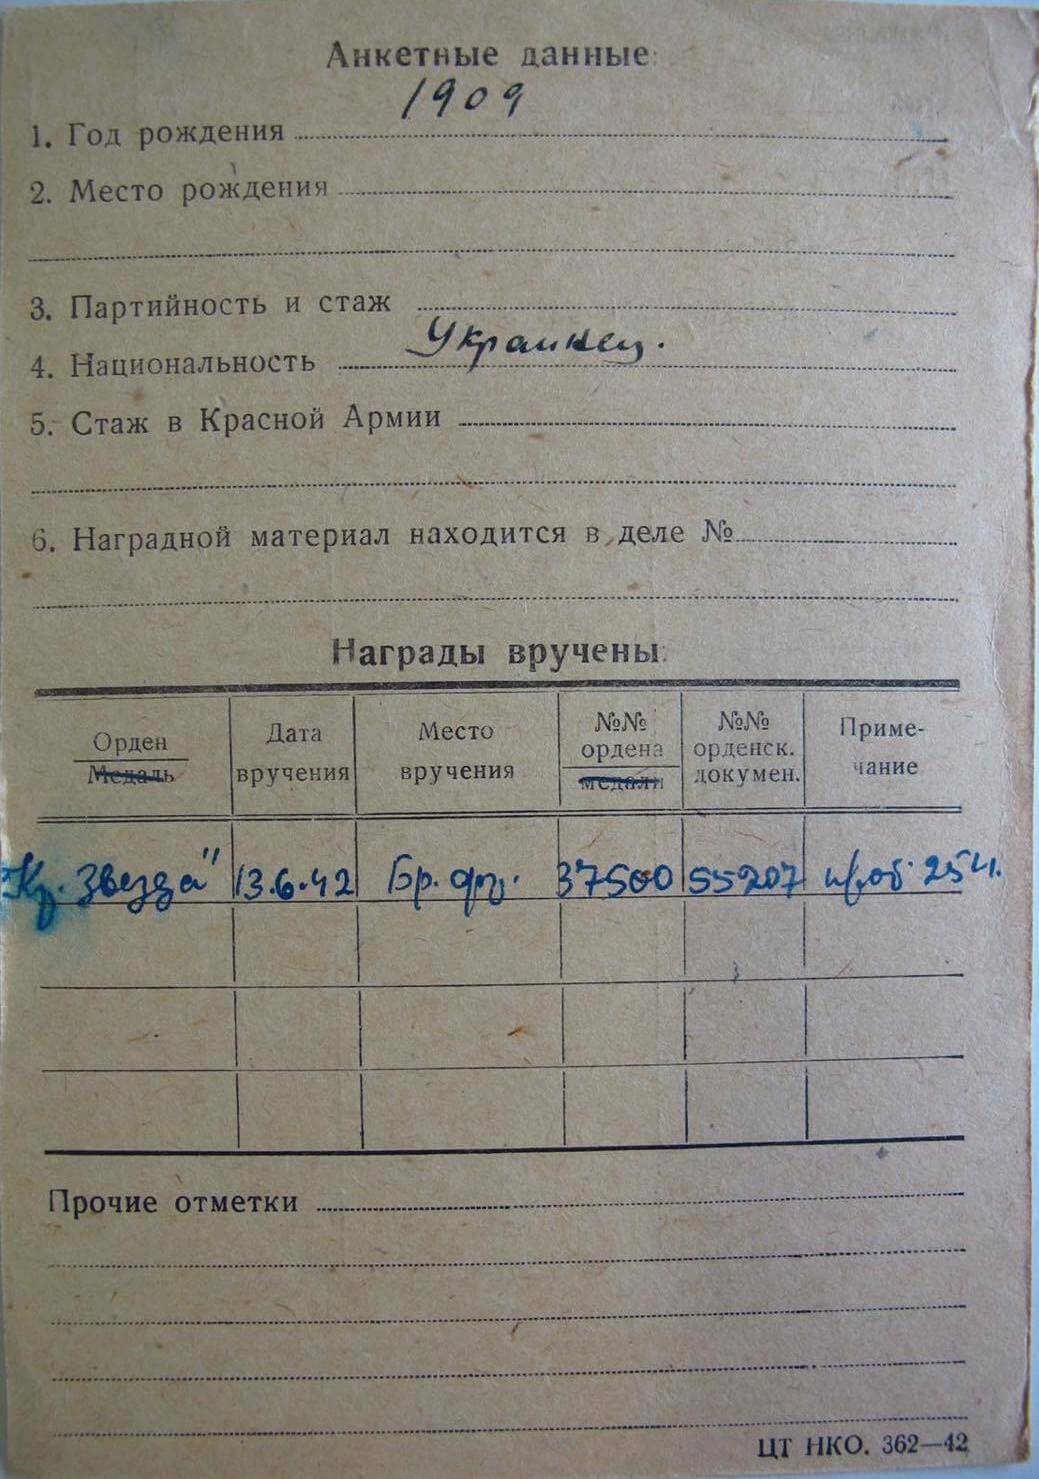 Анкетные данные:
1909
1. Год рождения
2. Место рождения
3. Партийность и стаж
Украинец.
4. Национальность
5. Стаж в Красной Армии
6. Наградной материал находится в деле №
Награды вручены:
Орден Медаль
Дата вручения
Место вручения
№№ ордена медали
№№ орденск. докумен.
Приме- чание
"Кр. Звезда" 13.6.42 Бр. фр. 37500 55207
Прочие отметки
ЦТ НКО. 362—42